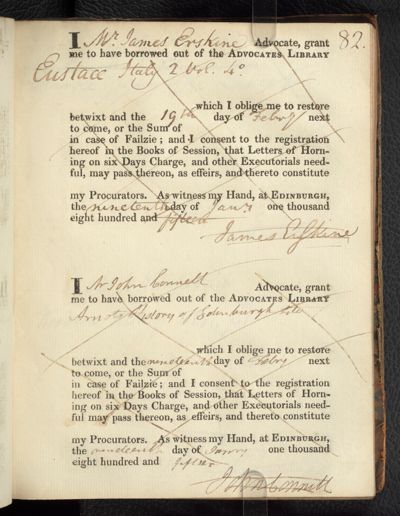 82.
I Mr. James Erskine Advocate, grant
me to have borrowed out of the ADVOCATES LIBRARY
Eustace Italy 2 Vol. 4o
which I oblige me to restore
betwixt and the 19th day of Febry next
to come, or the Sum of
in case of Failzie; and I consent to the registration
hereof in the Books of Session, that Letters of Horn-
ing on six Days Charge, and other Executorials need-
ful, may pass thereon, as effeirs, and thereto constitute
my Procurators. As witness my Hand, at EDINBURGH,
the nineteenth day of Jany one thousand
eight hundred and fifteen
James Erskine
I Mr John Connell Advocate, grant
me to have borrowed out of the ADVOCATES LIBRARY
Arnots History of Edinburgh
which I oblige me to restore
betwixt and the nineteenth day of Febry next
to come, or the Sum of
in case of Failzie; and I consent to the registration
hereof in the Books of Session, that Letters of Horn-
ing on six Days Charge, and other Executorials need-
ful may pass thereon, as effeirs, and thereto constitute
my Procurators. As witness my Hand, at EDINBURGH,
the nineteenth day of Janry one thousand
eight hundred and fifteen
John Connell